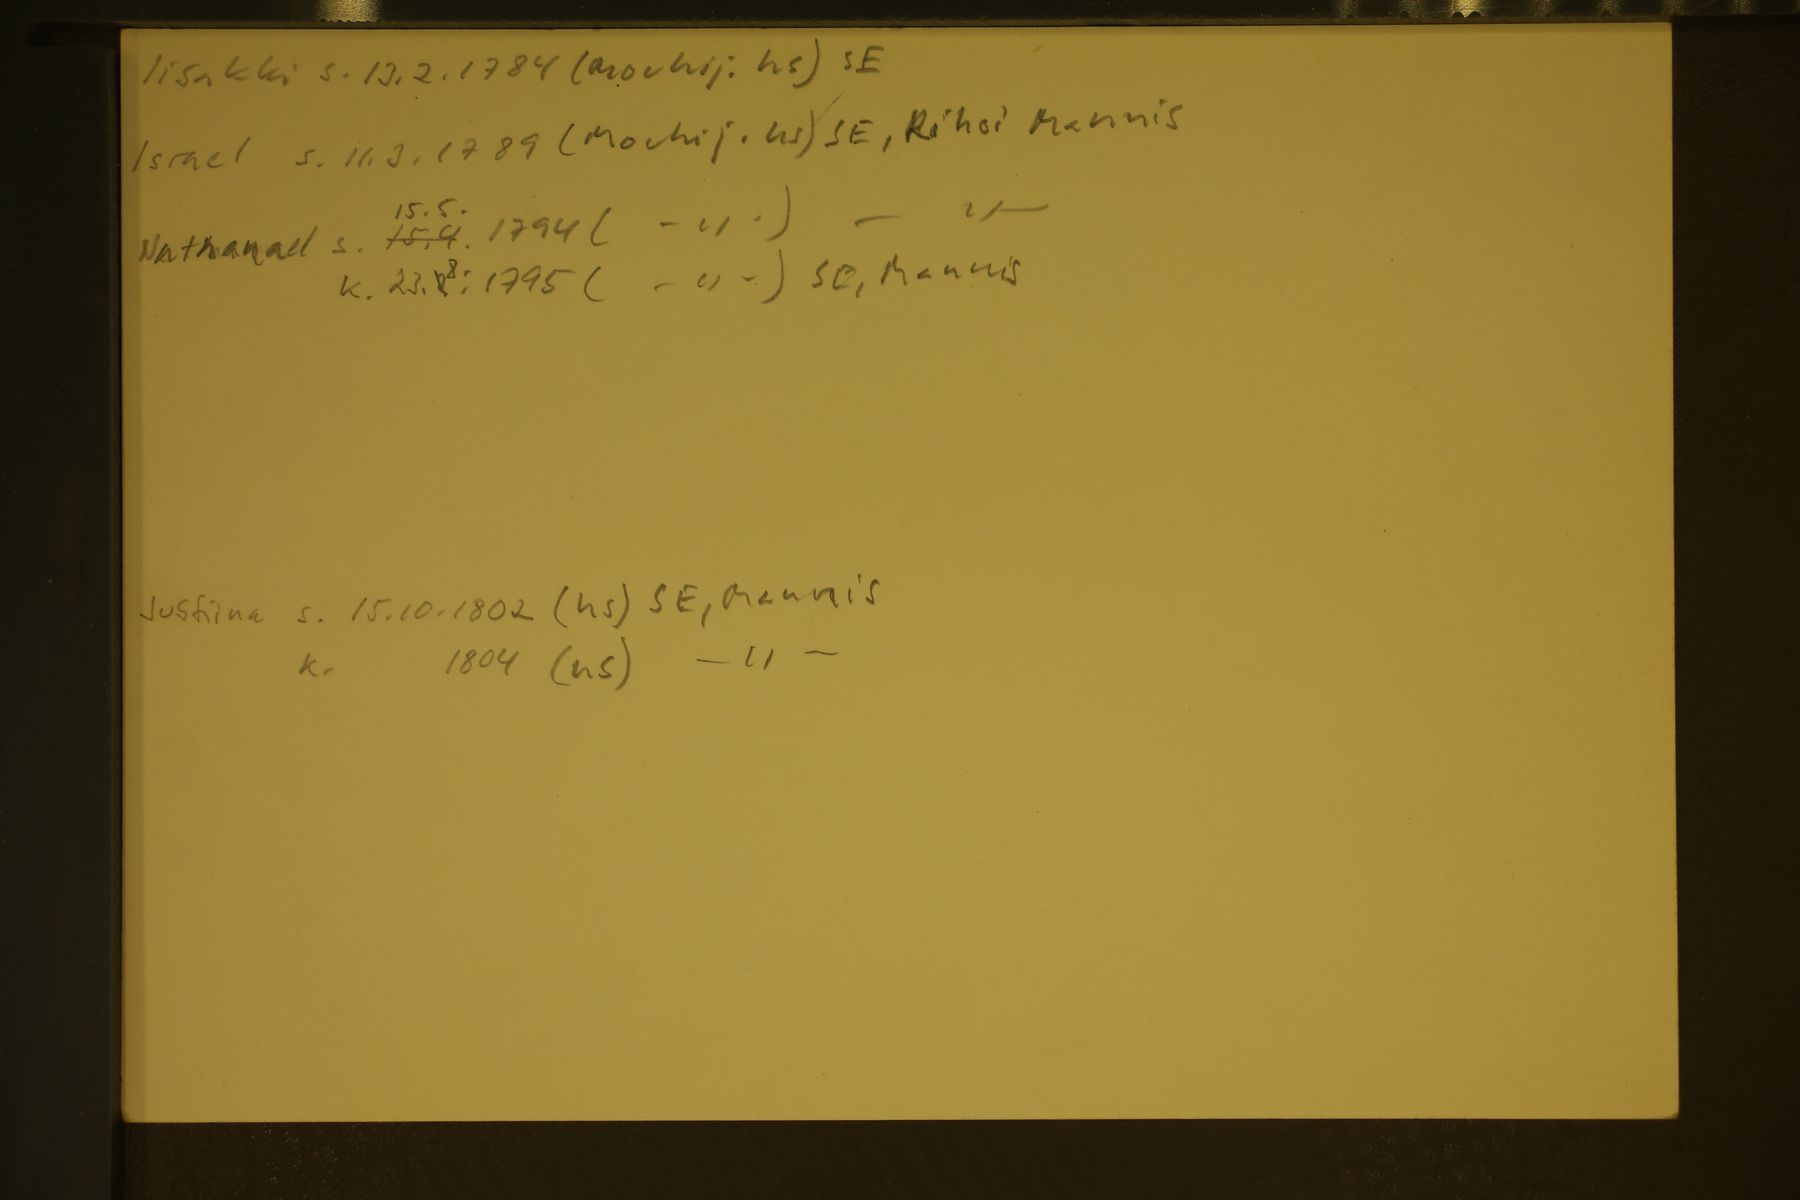 Iisakki s. 13.2.1784 (Mochij. hs) SE
Israel s. 11.3.1789 (Mochij. hs) SE, Rihoi Mannis
15.5.
Nathanael s. 15.4. 1794 ( - " - ) - " -
k. 23.8. 1795 ( - " - ) SE, Mannis
Justiina s. 15.10.1802 (hs) SE, Mannis
k. 1804 (hs) - " -